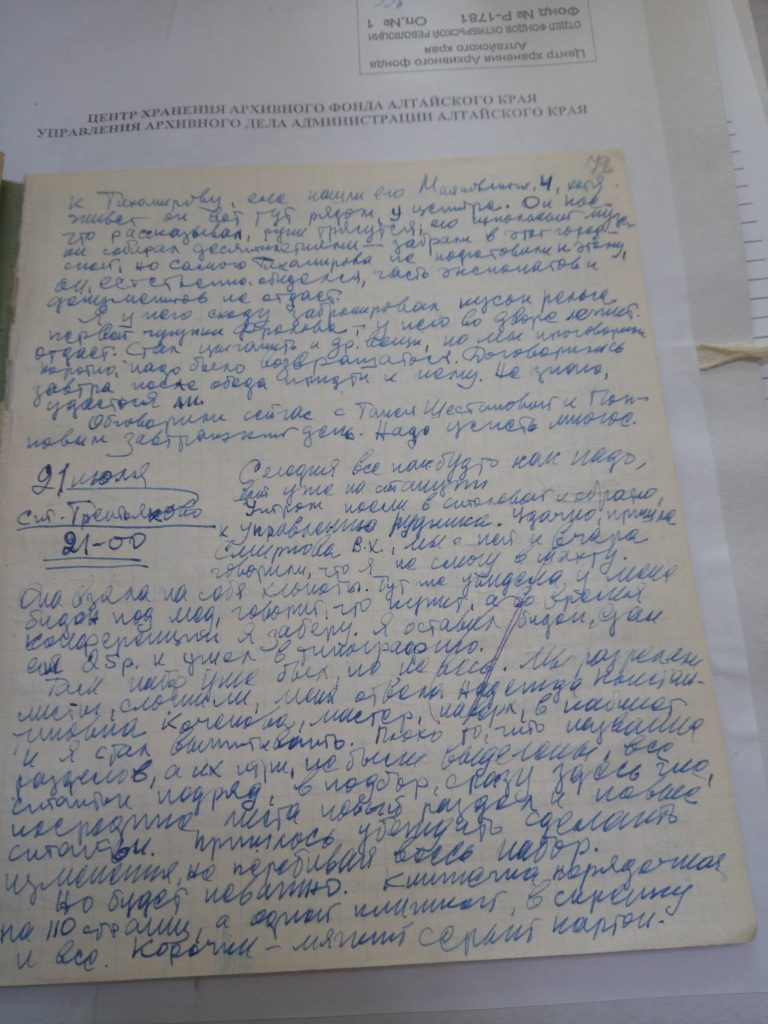 Центр хранения Архивного фонда
Алтайского края
ОТДЕЛ ФОНДОВ ОКТЯБРЬСКОЙ РЕВОЛЮЦИИ
Фонд № Р-1781 Оп. № 1
ЦЕНТР ХРАНЕНИЯ АРХИВНОГО ФОНДА АЛТАЙСКОГО КРАЯ
УПРАВЛЕНИЯ АРХИВНОГО ДЕЛА АДМИНИСТРАЦИИ АЛТАЙСКОГО КРАЯ
к Тихомирову, еле нашли его Маяковского, 4, хотя
живет он вот тут рядом, у центра. Он кое-
что рассказывал, руки трясутся, его
он собирал десятилетиями — забрали в этот
но самого Тихомирова не подготовили к этому,
он, естественно, обиделся, часть экспонатов и
документов не отдает.
Я у него сходу забронировал кусок рельса
первой чугунки Фролова — у него во дворе лежит.
отдаст. Стал и др. вещи, но мы поговорили
коротко, надо было возвращаться. Договорились
завтра после обеда прийти к нему. Не знаю,
удастся ли.
Обговорили сейчас с Таней Шестаковой и Поп-
повым завтрашний день. Надо успеть многое.
21 июля
ст. Третьяково
21-00
Сегодня все как будто как надо,
вот уже на станции
Утром поели в столовой и обратно,
к управлению рудника. Удачно, пришла
Смирнова В.Х., мы с ней и вчера
говорили, что я не смогу в шахту.
Она взяла на себя хлопоты. Тут же увидела у меня
бидон под мед, говорит, что купит, а во время
конференции я заберу. Я оставил бидон, дал
ей 25р. и ушел в типографию.
Там набор уже был, но не весь. Мы разрезали
листы, сложили, меня отвела Надежда Констан-
тиновна Коченова, мастер, наверх, в кабинет
и я стал вычитывать. Плохо то, что названия
разделов, а их три, не были выделены, все
статьи подряд, в подбор, сразу здесь же,
посредине листа новый раздел и новые
статьи. Пришлось убеждать сделать
изменения, не перебивая весь набор.
Но будет неважно. Книжечка порядочная
на 110 страниц, а одной книжкой, в скрепку
и все. Корочки — мягкий серый картон.